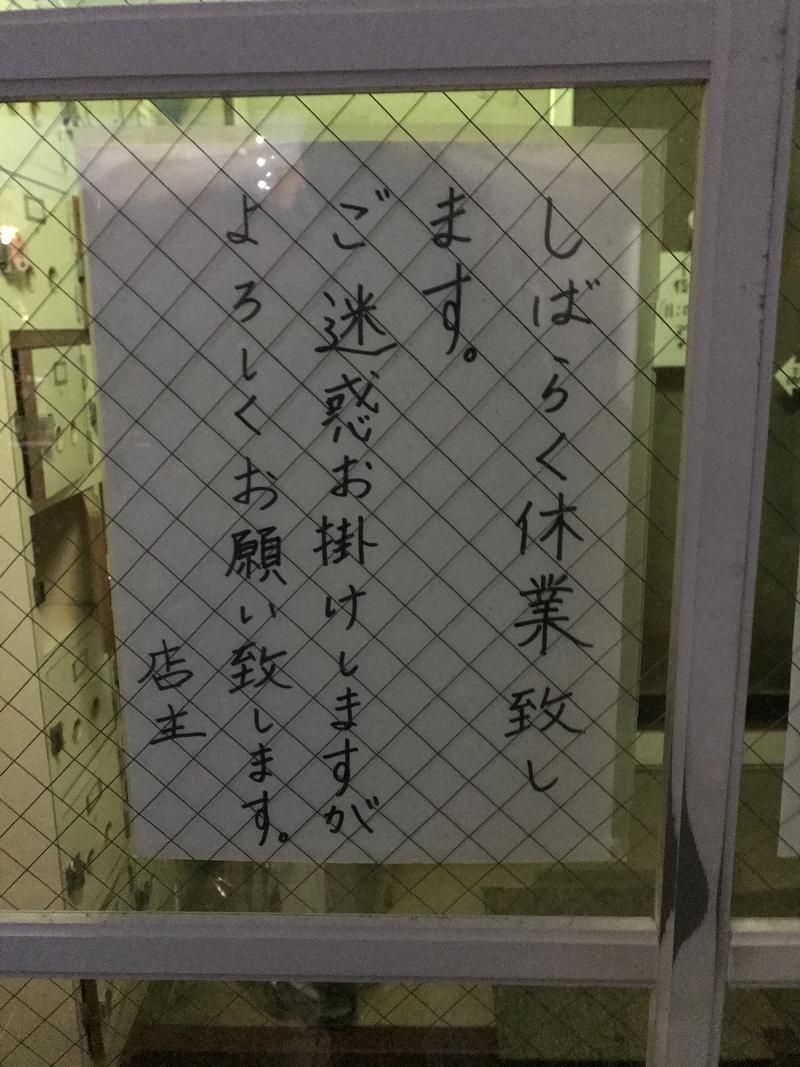 しばらく休業致し
ます。
ご迷惑お掛けしますが
よろしくお願い致します。
店主